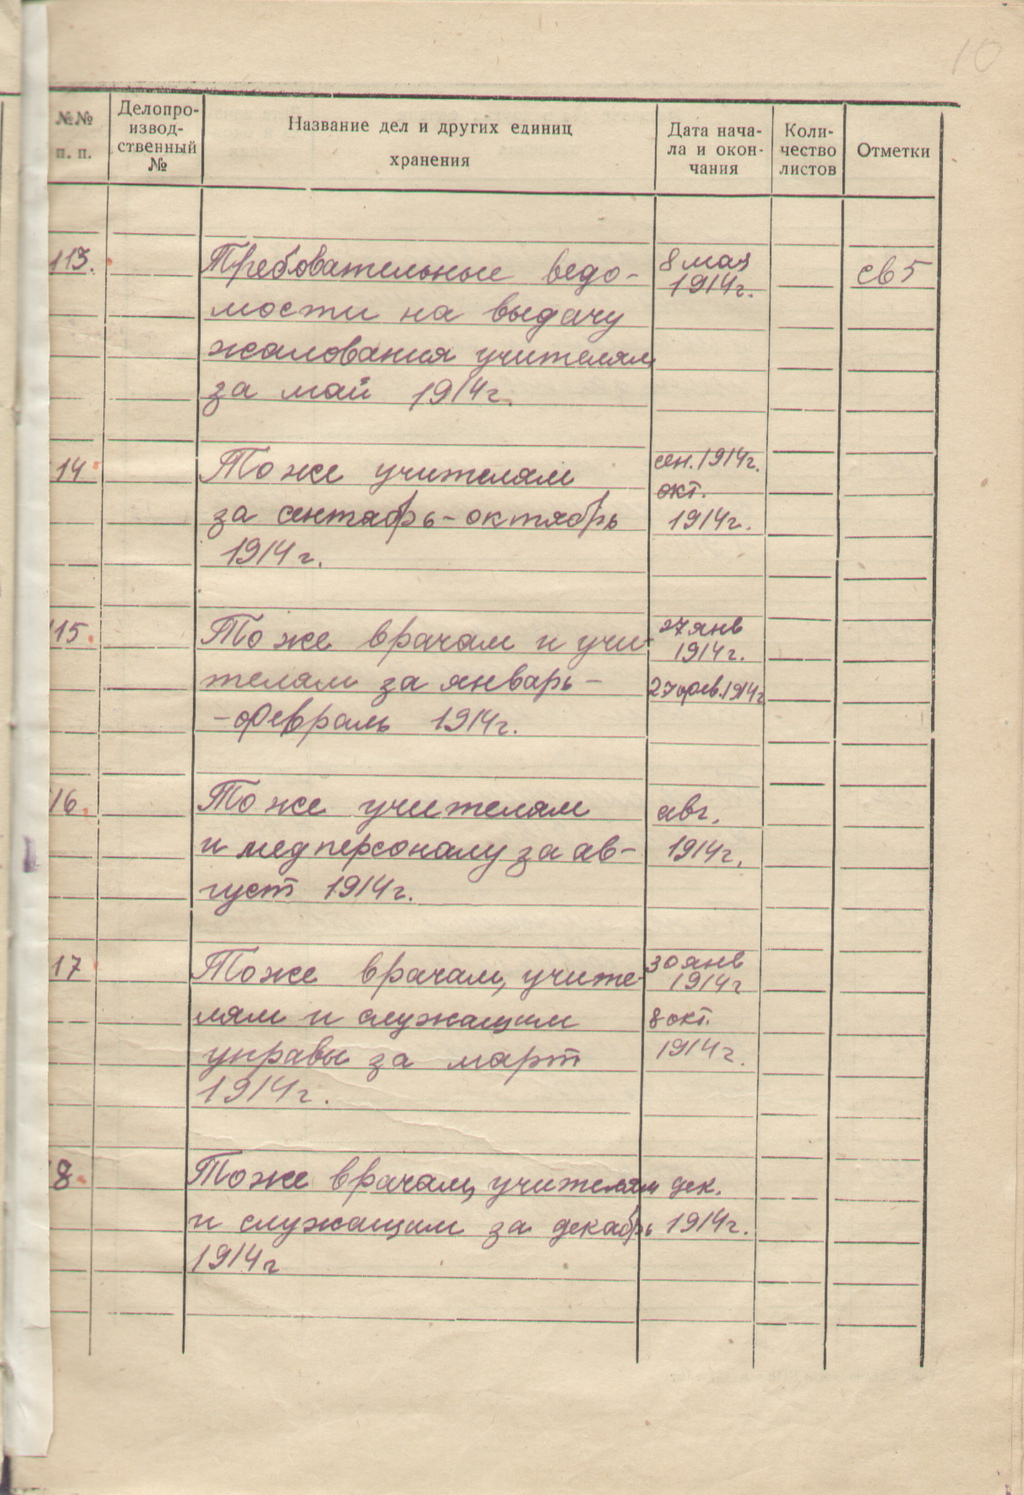 10
№№
п. п.
Делопро-
извод-
ственный
№
Название дел и других единиц
хранения
Дата нача-
ла и окон-
чания
Коли-
чество
листов
Отметки
113.
Требовательные ведо-
мости на выдачу
жалования учителям
за май 1914г.
8 мая
1914г.
св5
14
То же учителям
за сентябрь-октябрь
1914г.
сен. 1914г.
окт.
1914г.
15.
То же врачам и учи-
телям за январь-
-февраль 1914г.
27 янв
1914г.
27 фев. 1914г
16.
То же учителям
и медперсоналу за ав-
густ 1914г.
авг.
1914г.
17
То же врачам, учите-
лям и служащим
управы за март
1914г.
30 янв
1914г
8 окт.
1914г.
8.
То же врачам, учителям
и служащим за декабрь
1914г
дек.
1914г.